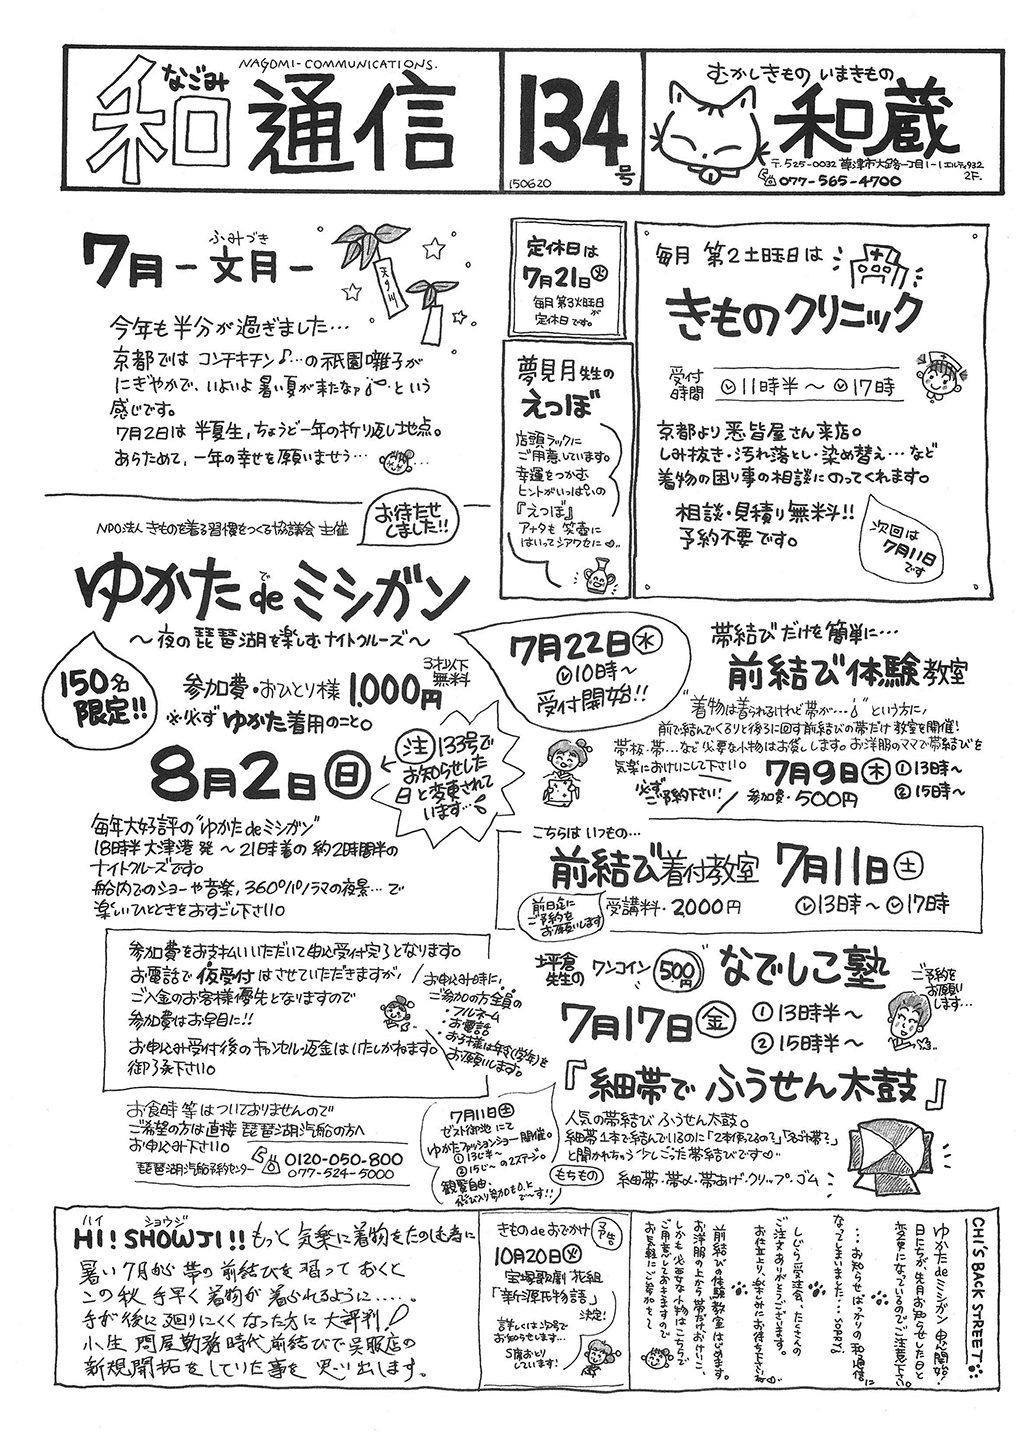 なごみ
和通信
NAGOMI-COMMUNICATIONS.
134号
150620
むかしきもの いまきもの
和蔵
〒525-0032 草津市大路一丁目1-1 エルティ932 2F.
077-565-4700
ふみづき
7月 - 文月 -
天の川
今年も半分が過ぎました…
京都では コンチキチン♪…の祇園囃子が
にぎやかで、いよいよ暑い夏が来たなァ…という
感じです。
7月2日は 半夏生,ちょうど一年の折り返し地点。
あらためて,一年の幸せを願いませう…
定休日は
7月21日㊋
毎月第3火曜日が
定休日です。
夢見月先生の
えつぼ
店頭ラックに
ご用意しています。
幸運をつかむ
ヒントがいっぱいの
『えつぼ』
アナタも 笑壺に
はいってシアワセに♡…
毎月 第2土曜日は
きものクリニック
受付時間 11時半 〜 17時
京都より 悉皆屋さん来店。
しみ抜き・汚れ落とし・染め替え…など
着物の困り事の相談にのってくれます。
相談・見積り無料!!
予約不要です。
次回は
7月11日
です
NPO法人 きものを着る習慣をつくる協議会 主催
お待たせ
しました!!
ゆかた de ミシガン
で
〜夜の琵琶湖を楽しむナイトクルーズ〜
150名
限定!!
参加費・おひとり様 1,000円
3才以下
無料
※必ず ゆかた着用のこと。
7月22日㊌
10時〜
受付開始!!
8月2日㊐
㊟133号で
お知らせした
日と変更されて
います…
毎年大好評の"ゆかた de ミシガン"
18時半 大津港 発 〜 21時着の 約2時間半の
ナイトクルーズです。
船内でのショーや音楽, 360°パノラマの夜景…で
楽しいひとときをおすごし下さい。
参加費をお支払いいただいて申込受付完了となります。
お電話で仮受付はさせていただきますが,
ご入金のお客様優先となりますので
参加費はお早目に!!
お申込み受付後のキャンセル・返金はいたしかねます。
御了承下さい。
お申込み時に,
ご参加の方全員の
・フルネーム
・お電話
・お子様は年令(学年)を
お願いします。
お食事等はついておりませんので
ご希望の方は直接 琵琶湖汽船の方へ
お申込み下さい。
琵琶湖汽船予約センター 0120-050-800
077-524-5000
7月11日㊏
ゼスト御池にて
ゆかたファッションショー開催。
①13じ半〜
②15じ〜の2ステージ。
観覧自由・
帯結びだけを簡単に…
前結び体験教室
"着物は着られるけれど帯が…" という方に,
前で結んでくるりと後ろに回す前結びの帯だけ教室を開催!
帯板・帯…など必要な小物はお貸しします。お洋服のママで帯結びを
気楽におけいこして下さい。
必ず
ご予約下さい!
7月9日㊍ ①13時〜
②15時〜
参加費・500円
こちらは いつもの…
前結び着付教室 7月11日㊏
前日迄に
ご予約を
お願いします
受講料・2000円
13時 〜 17時
坪倉
先生の ワンコイン 500円
なでしこ塾
ご予約を
お願い
します…
7月17日㊎ ①13時半〜
②15時半〜
『細帯で ふうせん太鼓』
人気の帯結び ふうせん太鼓。
細帯1本で結んでいるのに「2本使ってるの?」「名古屋帯?」
と聞かれちゃう 少しこった帯結びです♡
もちもの 細帯・帯〆・帯あげ・クリップ・ゴム
ハイ ショウジ
HI! SHOWJI!! もっと気楽に着物をたのしむ者に
暑い7月から 帯の前結びを習っておくと
この秋 手早く着物が着られるように.....
手が後に廻りにくくなった方に大評判!
小生 問屋勤務時代 前結びで呉服店の
新規開拓をしていた事を思い出します。
きもの de おでかけ 予告
10月20日㊋
宝塚歌劇 花組
「新源氏物語」
決定!
詳しくは次号で
お知らせします…
S席おとり
しています!
CHI'S BACK STREET
ゆかた de ミシガン 申込開始!
日にちが, 先月お知らせした日と
変更になっているのでご注意下さい。
…お知らせばっかりの和通信に
なってしまいました…SORRY
しじら受注会, たくさんの
ご注文ありがとうございます。
お仕立上り, 楽しみにお待ち下さいね♡
前結びの体験教室はじめます。
お洋服の上から帯だけおけいこ,
しかも必要な小物はこちらで
ご用意しておきますので
お気軽にご参加を♡